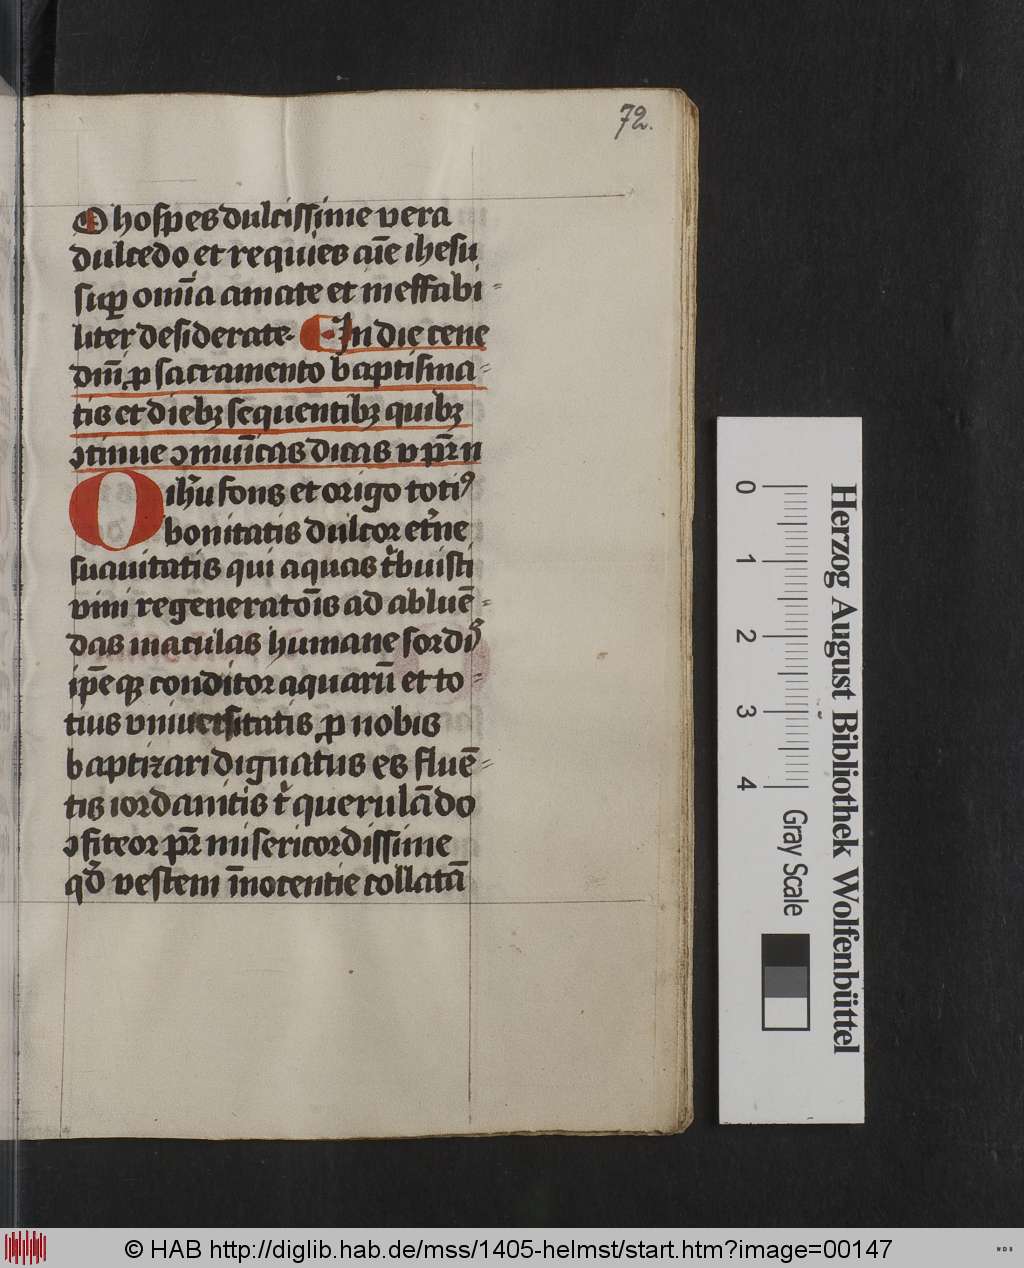 72.
O hospes dulcissime vera
dulcedo et requies aīe ihesu
suꝑ om̄ia amate et ineffabi=
liter desiderate. In die cene
dn̄i ꝓ sacramento baptisma=
tis et diebꝫ sequentibꝫ quibꝫ
ↄtinue ↄmuīcas dicas v pr̄ n
O ihū fons et origo totiꝰ
bonitatis dulcor et̄ne
suauitatis qui aquas t̄buisti
vim regeneratōis ad abluē=
das maculas humane sordiꝰ
ip̄e qꝫ conditor aquarū et to=
tius vniuersitatis ꝓ nobis
baptizari dignatus es fluē=
tis iordanitis t querulādo
ↄfiteor pr̄ misericordissime
qd̄ vestem īnocentie collatā
Herzog August Bibliothek Wolfenbüttel
0 1 2 3 4 Gray Scale
© HAB http://diglib.hab.de/mss/1405-helmst/start.htm?image=00147